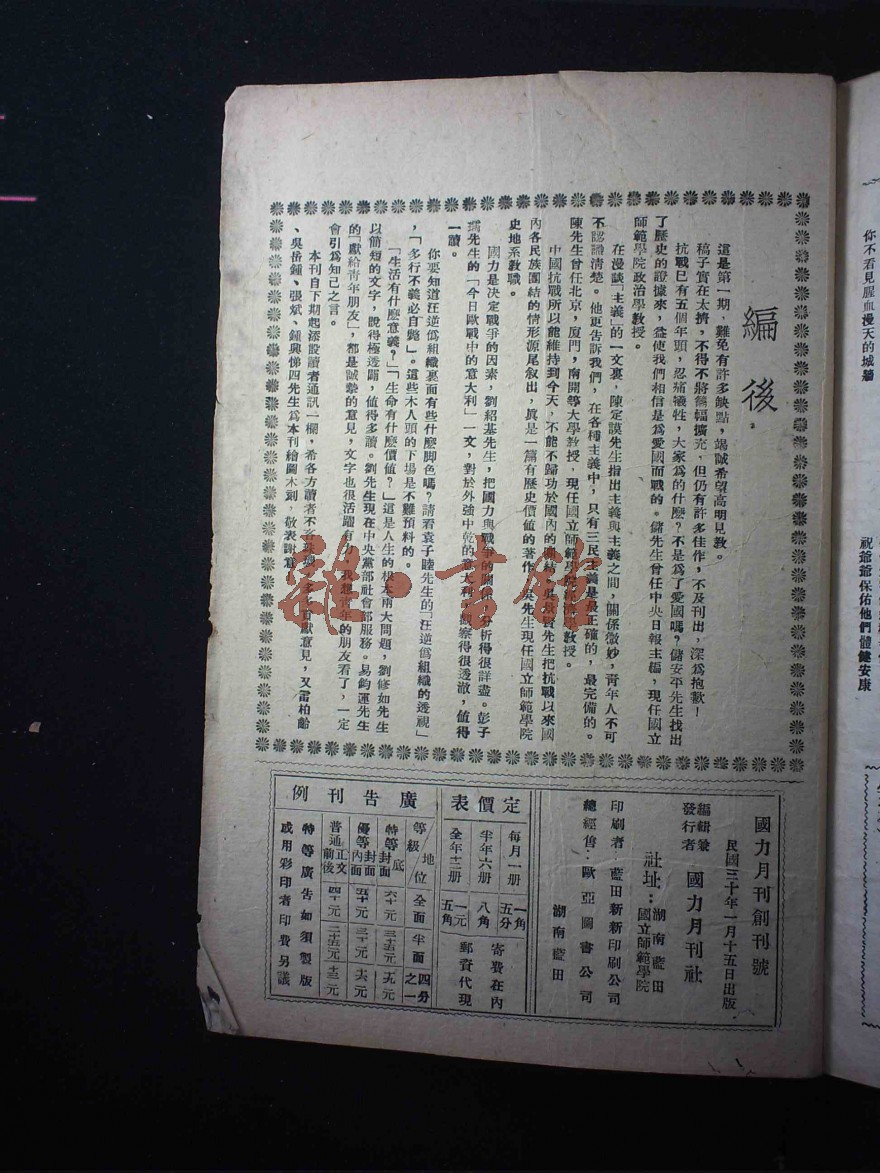 編後
這是第一期，難免有許多缺點，竭誠希望高明見教。
稿子實在太擠，不得不將篇幅擴充，但仍有許多佳作，不及刊出，深為抱歉！
抗戰已有五個年頭，忍痛犧牲，大家為的什麼？不是為了愛國嗎？儲安平先生找出
了歷史的證據來，益使我們相信是為愛國而戰的。儲先生曾任中央日報主編，現任國立
師範學院政治學教授。
在漫談「主義」的一文裏，陳定謨先生指出主義與主義之間，關係微妙，青年人不可
不認識清楚。他更告訴我們，在各種主義中，只有三民主義是最正確的，最完備的。
陳先生曾任北京，廈門，南開等大學教授，現任國立師範學院教授。
中國抗戰所以能維持到今天，不能不歸功於國內的團結。吳景賢先生把抗戰以來國
內各民族團結的情形源尾叙出，眞是一篇有歷史價値的著作。吳先生現任國立師範學院
史地系教職。
國力是決定戰爭的因素，劉紹基先生，把國力與戰爭的關係，分析得很詳盡。彭子
瑀先生的「今日歐戰中的意大利」一文，對於外強中乾的意大利，觀察得很透澈，値得
一讀。
你要知道汪逆偽組織裏面有些什麼脚色嗎？請看袁子睦先生的「汪逆偽組織的透視」
，「多行不義必自斃」。這些木人頭的下場是不難預料的。
「生活有什麼意義？」「生命有什麼價値？」這是人生的根本兩大問題，劉修如先生
以簡短的文字，說得極透闢，値得多讀。劉先生現在中央黨部社會部服務。易鈞運先生
的「獻給青年朋友」，都是誠摯的意見，文字也很活躍有力，我想青年的朋友看了，一定
會引為知己之言。
本刊自下期起添設讀者通訊一欄，希各方讀者不吝珠璣，多多貢獻意見，又雷柏齡
、吳岳鍾、張斌、鍾興悌四先生為本刊繪圖木刻，敬表謝意。
國力月刊創刊號
民國三十年一月十五日出版．
編輯兼
發行者
國力月刊社
社址：湖南藍田
國立師範學院
印刷者 藍田新新印刷公司
總經售：歐亞圖書公司
湖南藍田
定價表
每月一册 一角五分
半年六册 八角
全年十二册 一元五角
寄費在內
郵資代現
廣告刊例
等級 地位 全面 半面 四分之一
特等 底封面 六十元 三十五元 十九元
優等 封面內面 五十元 三十元 十六元
普通 正文前後 四十元 二十五元 十三元
特等廣告如須製版
或用彩印者印費另議
雜·書館
你不看見腥血漫天的城牆
祝爺爺保佑他們體健安康